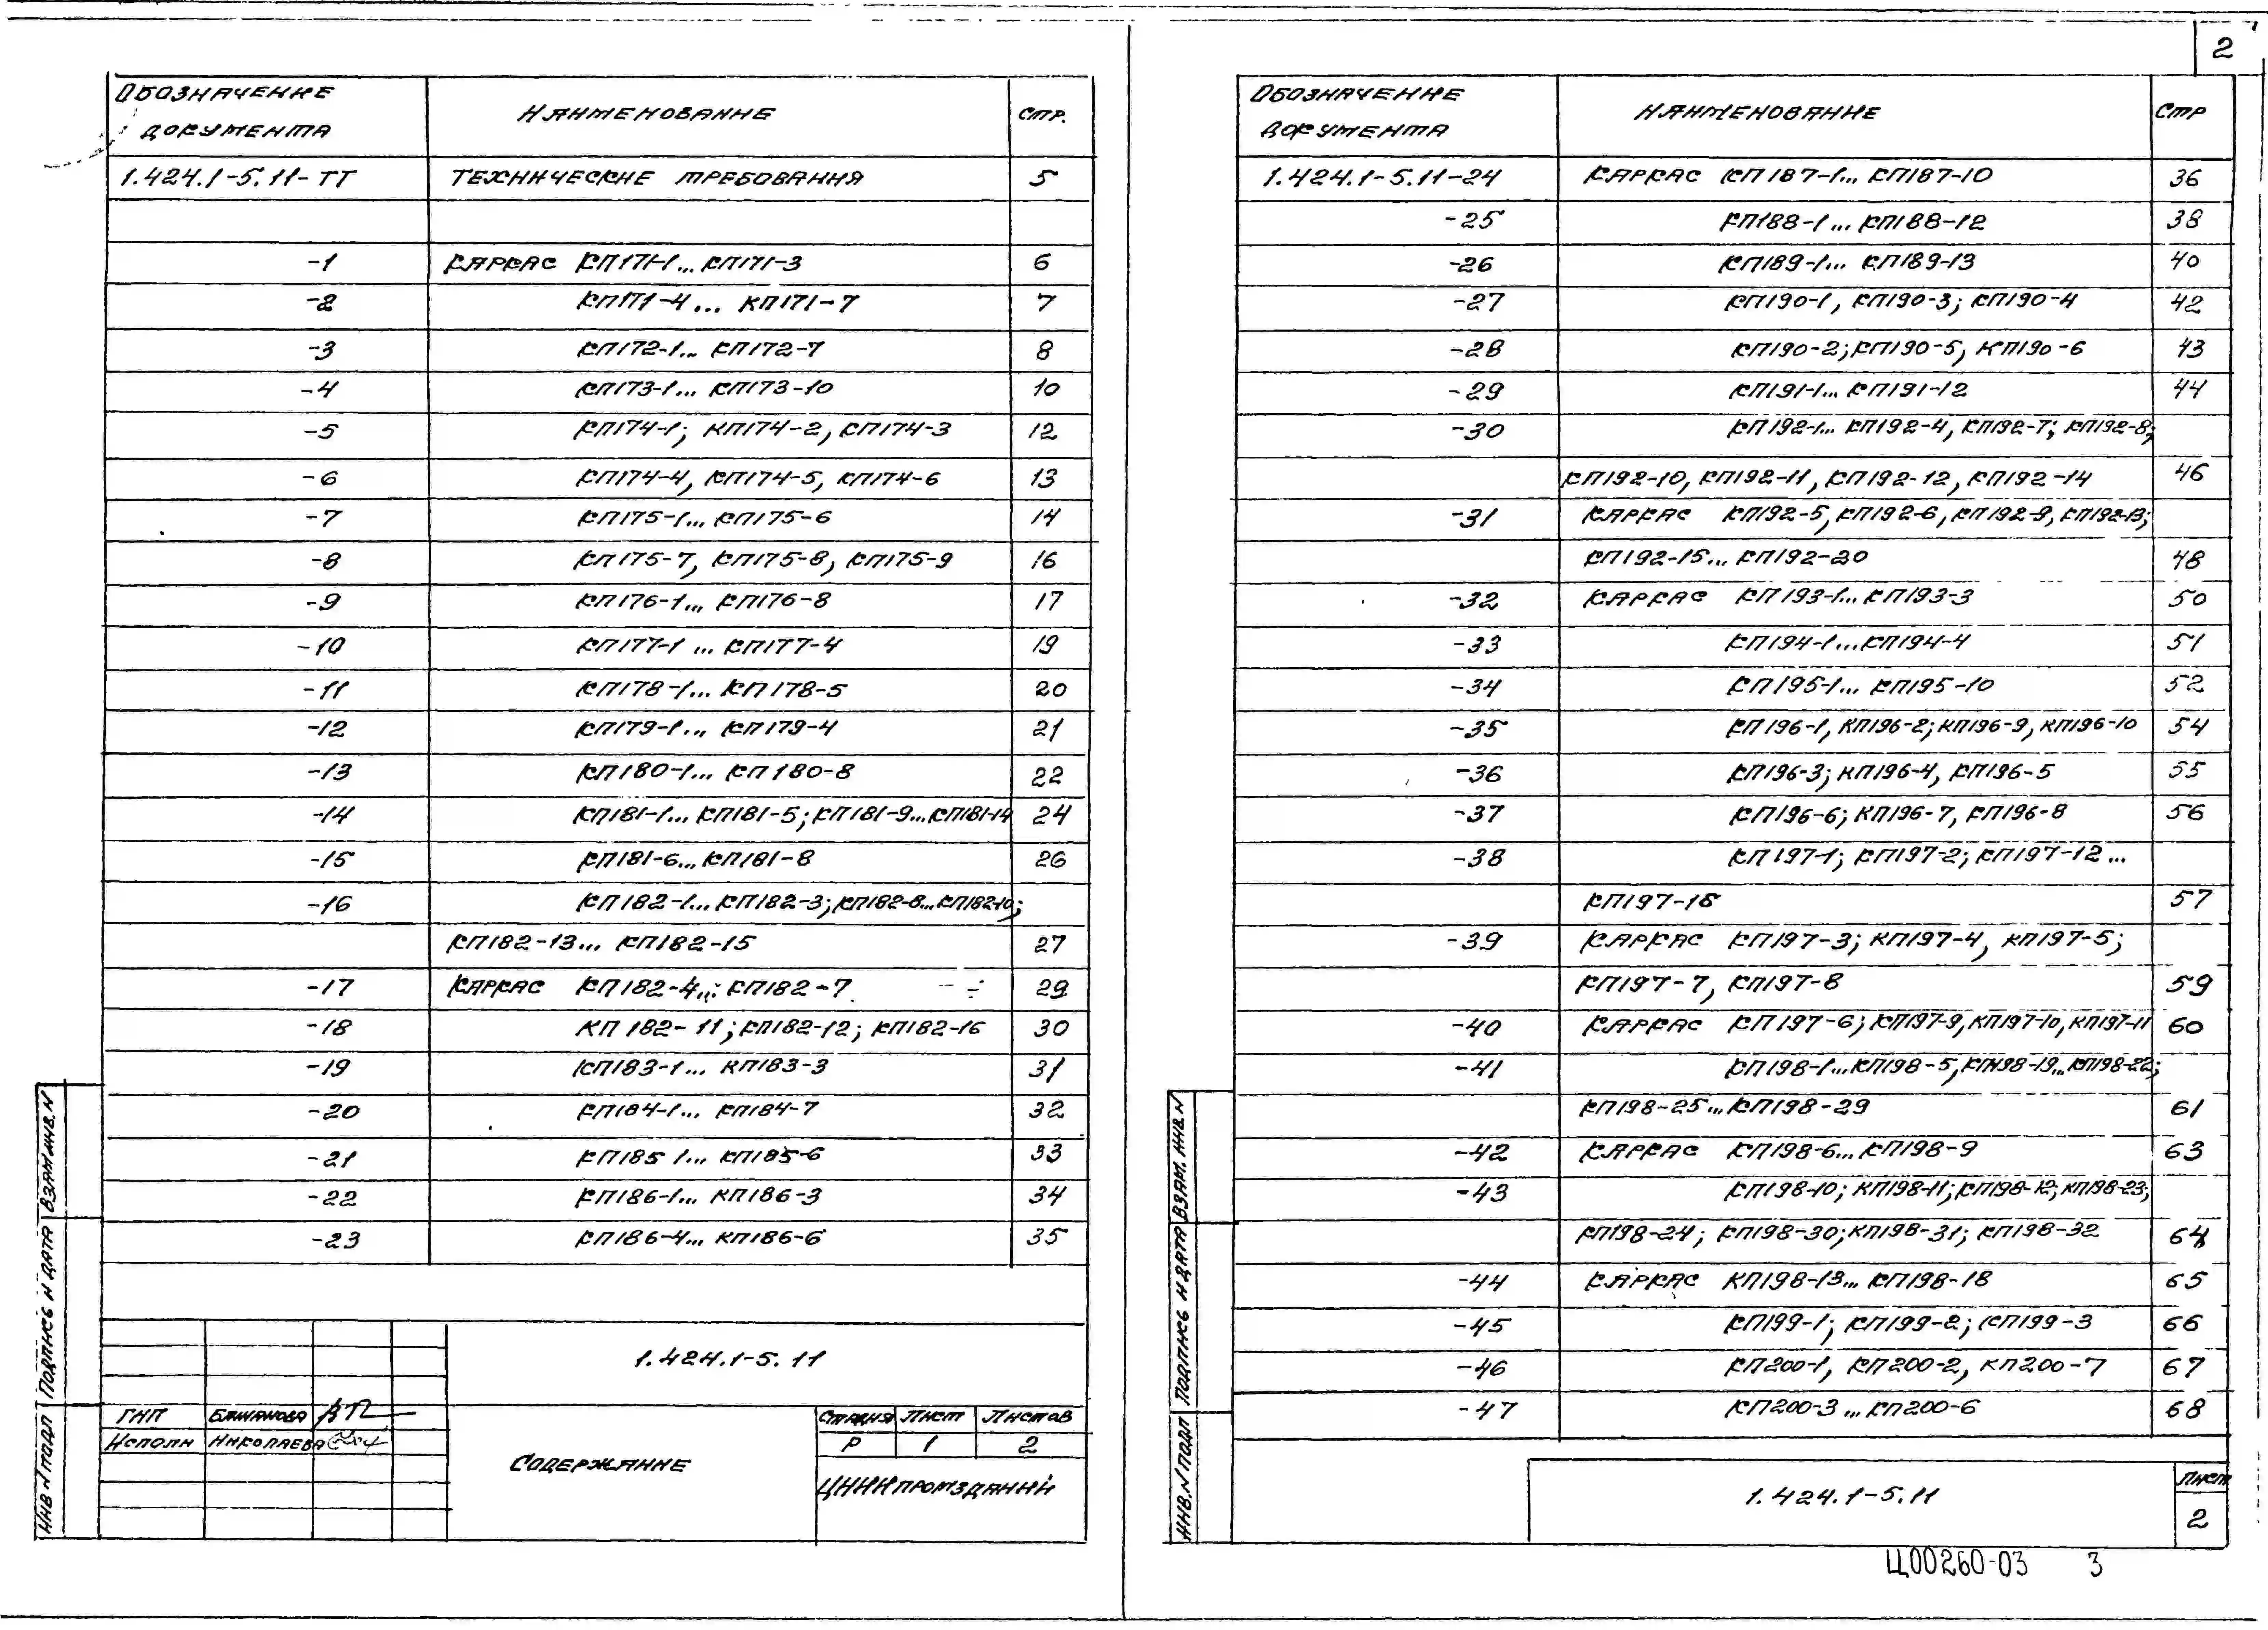 2
Обозначение документа Наименование Стр.
1.424.1-5.11-ТТ Технические требования 5
-1 Каркас КП171-1... КП171-3 6
-2 КП171-4... КП171-7 7
-3 КП172-1... КП172-7 8
-4 КП173-1... КП173-10 10
-5 КП174-1; КП174-2, КП174-3 12
-6 КП174-4, КП174-5, КП174-6 13
-7 КП175-1... КП175-6 14
-8 КП175-7, КП175-8, КП175-9 16
-9 КП176-1... КП176-8 17
-10 КП177-1 ... КП177-4 19
-11 КП178-1... КП178-5 20
-12 КП179-1... КП179-4 21
-13 КП180-1... КП180-8 22
-14 КП181-1... КП181-5; КП181-9...КП181-14 24
-15 КП181-6... КП181-8 26
-16 КП182-1... КП182-3; КП182-8...КП182-10;
КП182-13... КП182-15 27
-17 Каркас КП182-4... КП182-7 29
-18 КП182-11; КП182-12; КП182-16 30
-19 КП183-1... КП183-3 31
-20 КП184-1... КП184-7 32
-21 КП185 1... КП185-6 33
-22 КП186-1... КП186-3 34
-23 КП186-4... КП186-6 35
1.424.1-5.11
ГИП
Исполн Николаева
Содержание
Стадия Лист Листов
Р 1 2
ЦНИИпромзданий
Инв.N подл Подпись и дата Взам инв.N
Обозначение документа Наименование Стр
1.424.1-5.11-24 Каркас КП187-1... КП187-10 36
-25 КП188-1... КП188-12 38
-26 КП189-1... КП189-13 40
-27 КП190-1, КП190-3; КП190-4 42
-28 КП190-2; КП190-5, КП190-6 43
-29 КП191-1... КП191-12 44
-30 КП192-1... КП192-4, КП192-7; КП192-8;
КП192-10, КП192-11, КП192-12, КП192-14 46
-31 Каркас КП192-5, КП192-6, КП192-9, КП192-13;
КП192-15... КП192-20 48
-32 Каркас КП193-1... КП193-3 50
-33 КП194-1...КП194-4 51
-34 КП195-1... КП195-10 52
-35 КП196-1, КП196-2; КП196-9, КП196-10 54
-36 КП196-3; КП196-4, КП196-5 55
-37 КП196-6; КП196-7, КП196-8 56
-38 КП197-1; КП197-2; КП197-12...
КП197-18 57
-39 Каркас КП197-3; КП197-4, КП197-5;
КП197-7, КП197-8 59
-40 Каркас КП197-6; КП197-9, КП197-10, КП197-11 60
-41 КП198-1...КП198-5, КП198-19...КП198-22;
КП198-25...КП198-29 61
-42 Каркас КП198-6... КП198-9 63
-43 КП198-10; КП198-11; КП198-12; КП198-23;
КП198-24; КП198-30; КП198-31; КП198-32 64
-44 Каркас КП198-13... КП198-18 65
-45 КП199-1; КП199-2; КП199-3 66
-46 КП200-1, КП200-2, КП200-7 67
-47 КП200-3... КП200-6 68
1.424.1-5.11
Лист
2
Инв.N подл Подпись и дата Взам. инв.N
Ц00260-03 3